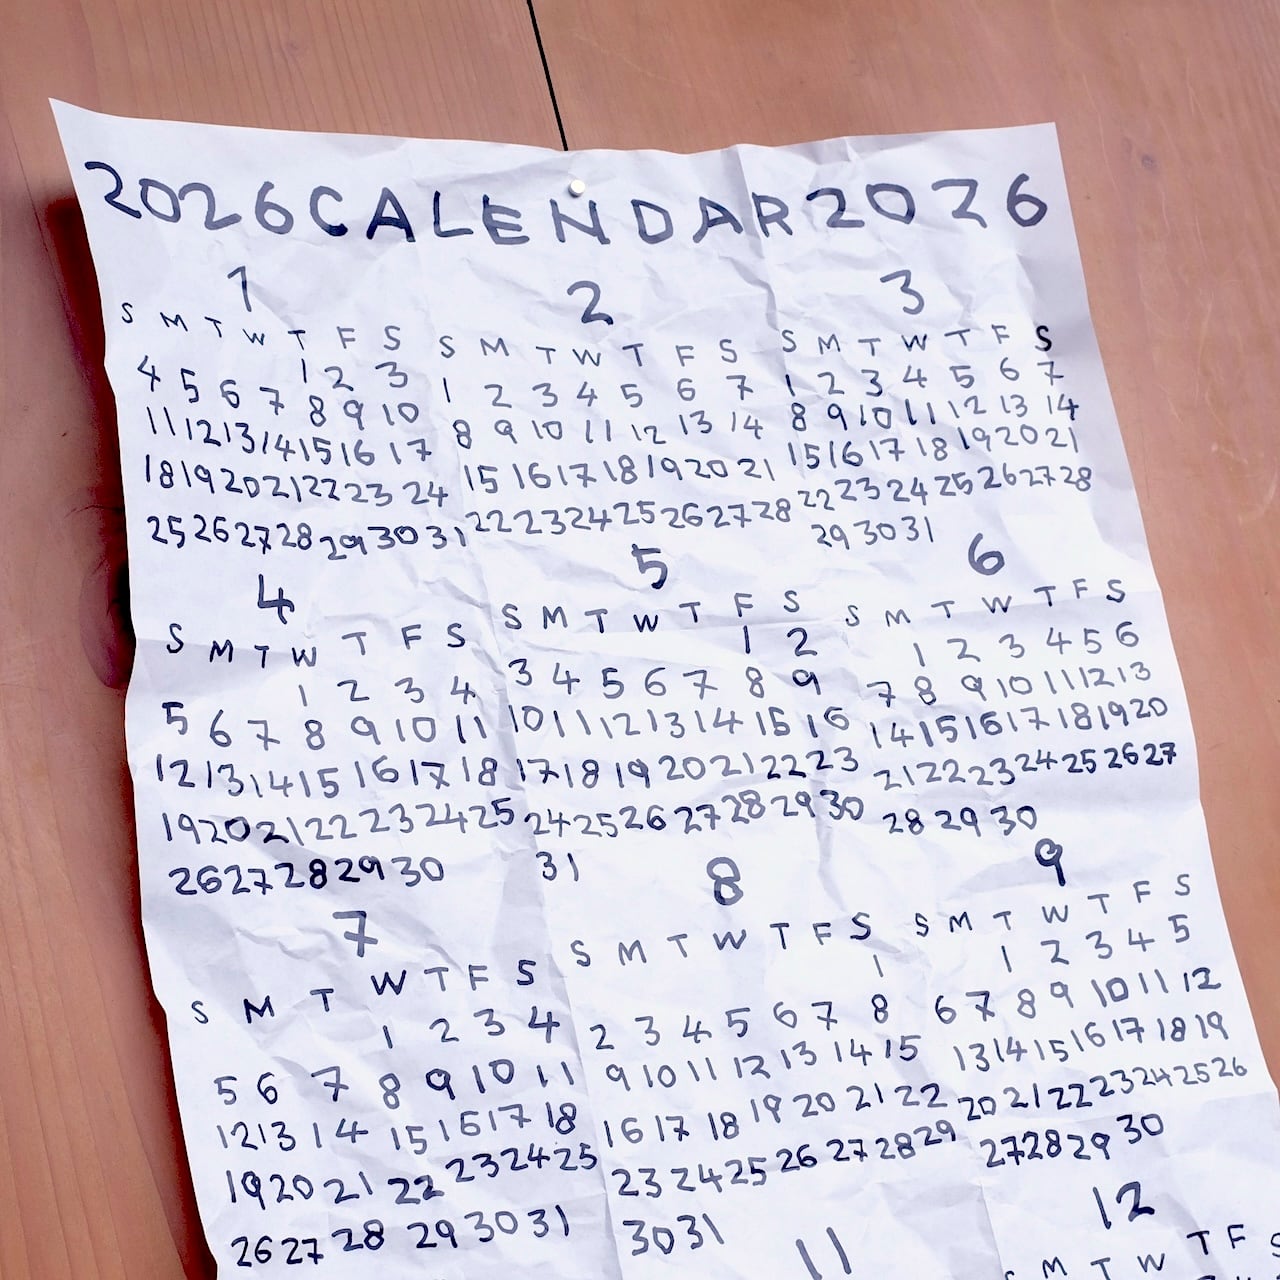 2026 CALENDAR 2026
1
S M T W T F S
1 2 3
4 5 6 7 8 9 10
11 12 13 14 15 16 17
18 19 20 21 22 23 24
25 26 27 28 29 30 31
2
S M T W T F S
1 2 3 4 5 6 7
8 9 10 11 12 13 14
15 16 17 18 19 20 21
22 23 24 25 26 27 28
3
S M T W T F S
1 2 3 4 5 6 7
8 9 10 11 12 13 14
15 16 17 18 19 20 21
22 23 24 25 26 27 28
29 30 31
4
S M T W T F S
1 2 3 4
5 6 7 8 9 10 11
12 13 14 15 16 17 18
19 20 21 22 23 24 25
26 27 28 29 30
5
S M T W T F S
1 2
3 4 5 6 7 8 9
10 11 12 13 14 15 16
17 18 19 20 21 22 23
24 25 26 27 28 29 30
31
6
S M T W T F S
1 2 3 4 5 6
7 8 9 10 11 12 13
14 15 16 17 18 19 20
21 22 23 24 25 26 27
28 29 30
7
S M T W T F S
1 2 3 4
5 6 7 8 9 10 11
12 13 14 15 16 17 18
19 20 21 22 23 24 25
26 27 28 29 30 31
8
S M T W T F S
1
2 3 4 5 6 7 8
9 10 11 12 13 14 15
16 17 18 19 20 21 22
23 24 25 26 27 28 29
30 31
9
S M T W T F S
1 2 3 4 5
6 7 8 9 10 11 12
13 14 15 16 17 18 19
20 21 22 23 24 25 26
27 28 29 30
11
12
M T W T F S